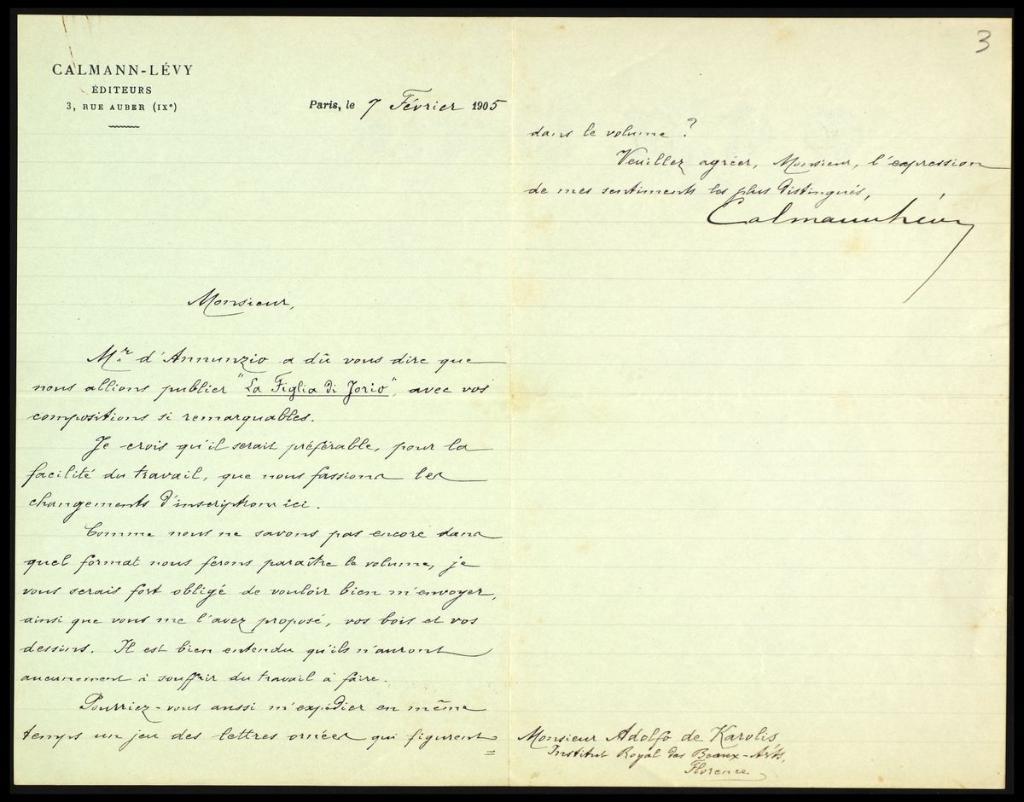 CALMANN-LÉVY
ÉDITEURS
3, RUE AUBER (IXe)
Paris, le 7 Février 1905
Monsieur,
Mr. d'Annunzio a dû vous dire que
nous allions publier "La Figlia di Jorio", avec vos
compositions si remarquables.
Je crois qu'il serait préférable, pour la
facilité du travail, que nous fassions les
changements d'inscription ici.
Comme nous ne savons pas encore dans
quel format nous ferons paraître le volume, je
vous serais fort obligé de vouloir bien m'envoyer,
ainsi que vous me l'avez proposé, vos bois et vos
dessins. Il est bien entendu qu'ils n'auront
aucunement à souffrir du travail à faire.
Pourriez-vous aussi m'expédier en même
temps un jeu des lettres ornées qui figurent
3
dans le volume ?
Veuillez agréer, Monsieur, l'expression
de mes sentiments les plus distingués,
Calmann Lévy
Monsieur Adolfo de Karolis
Institut Royal des Beaux-Arts,
Florence